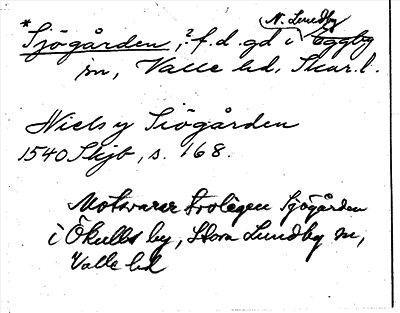 N. Lundby
*Sjögården, ? f.d. gd i Eggby
sn, Valle hd, Skar. l.
Niels y Siögården
1540 Skjb, s. 168.
Motsvarar troligen Sjögården
i Ökulls by, Stora Lundby sn,
Valle hd